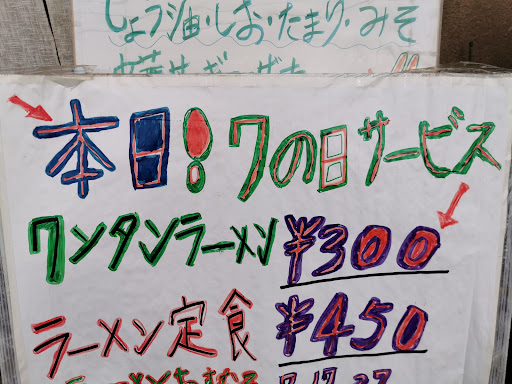 しょう油・しお・たまり・みそ
本日!7の日サービス
ワンタンラーメン ¥300
ラーメン定食 ¥450
7.17.27